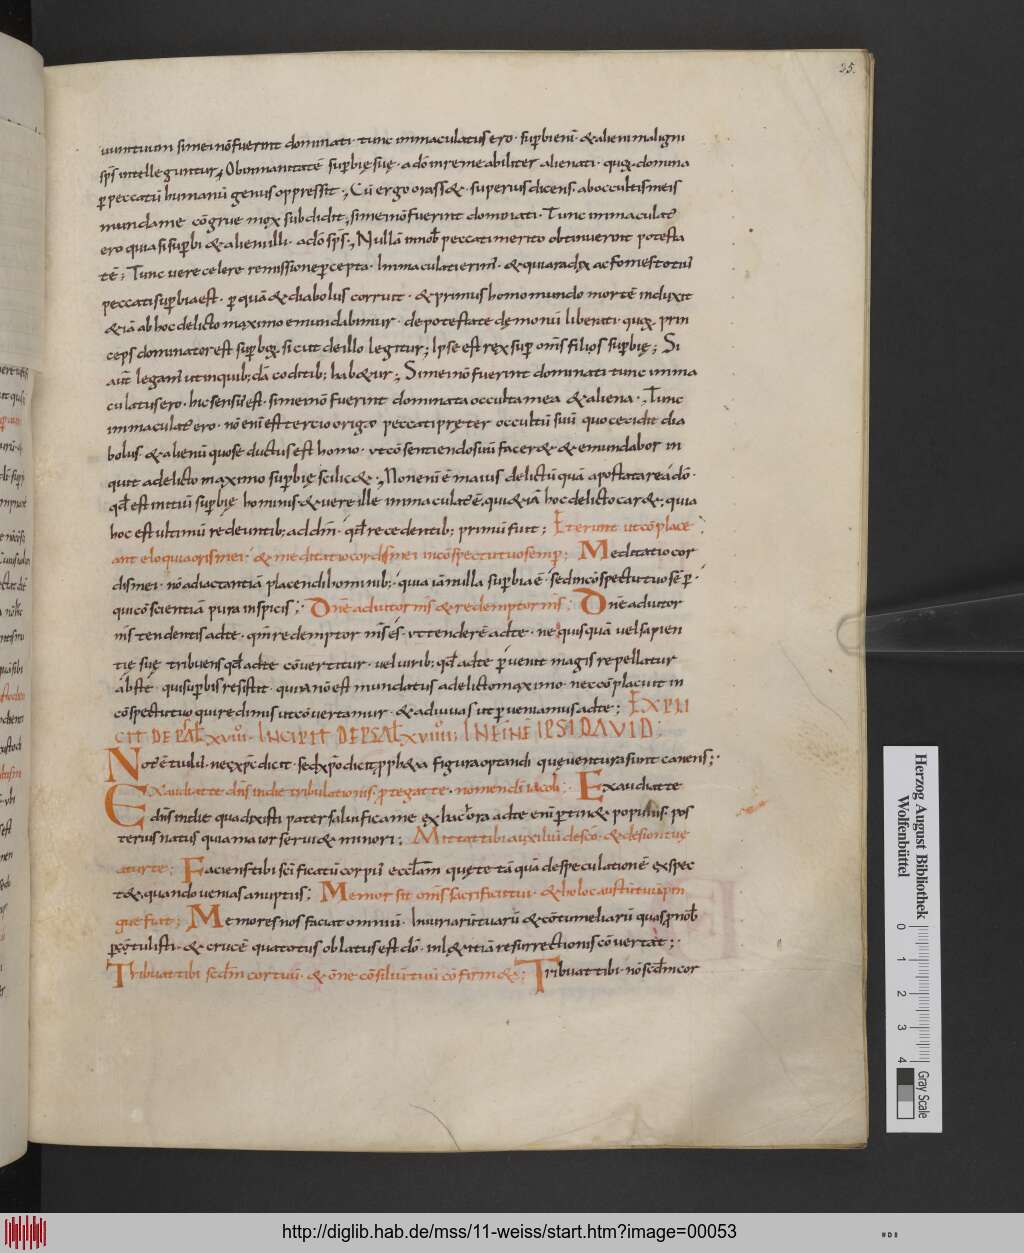 25.
uuntium simei nō fuerint dominati · tunc inmaculatus ero · supbieni · & alieni maligni
sp̄s intelleguntur, Ob inmanitatē supbię suę · a dō inremeabiliter alienati · quę domina
p peccatū humanū genus oppressit ·, Cū ergo orass& · superius dicens · ab occultis meis
munda me congrue mox subdidit, si mei nō fuerint dominati · Tunc inmaculat
ero quasi supbi & alieni illi · a dō sp̄s ·, Nullā in nob peccati merito obtinuerint potesta
tē; Tunc uere celere remissione pcepta · Inmaculati erim · & quia radix ac fomes totiu
peccati supbia est · p quā & diabolus corruit · & primus homo mundo mortē induxit
& iā ab hoc delicto maximo emundabimur · de potestate demonū liberati · quę prin
ceps dominator est supbię sicut de illo legitur; Ipse est rex sup om̄s filios supbię; Si
aut legam ut in quib; dā codicib; hab&ur ·, Si mei nō fuerint dominati tunc inma
culatus ero · hic sensus est · si mei nō fuerint dominata occulta mea & aliena · Tunc
inmaculat ero · nō eni est tercio origo peccati preter occultū suū quo cecidit dia
bolus · & alienū quo seductus est homo · ut cōsentiendo suū facer& & emundabor in
quit a delicto maximo supbię scilic& ·, Non eni ē maius delictū quā apostatare a dō ·
qd est initiū supbię hominis · & uere ille inmaculat ē, qui & iā hoc delicto car& ·, quia
hoc est ultimū redeuntib; ad dm̄ · qd recedentib; primū fuit; Et erunt ut cōplace
ant eloquia oris mei · & meditatio cordis mei in cōspectu tuo semp; Meditatio cor
dis mei · nō ad iactantiā placendi hominib; · quia iā nulla supbia ē · sed in cōspectu tuo sēp ·
qui cōscientiā pura inspicis; · Dn̄e adiutor ms & redemptor ms; Dn̄e adiutor
ms tendentis ad te · qm̄ redemptor ms es · ut tenderē ad te · ne quisquā uel sapien
tię suę tribuens qd ad te cōuertitur · uel uirib; qd ad te puenit magis repellatur
abs te · qui supbis resistit · quia nō est mundatus a delicto maximo · nec cōplacuit in
cōspectu tuo qui redimis ut cōuertamur · & adiuuas ut pueniamus ad te; EXPLI
CIT DE PSAL XVIII · INCIPIT DE PSAL XVIIII; IN FINĒ IPSI DAVID;
Notē titul · nec xp̄c dicit · sed xp̄o dicit, p ph&a figura optandi quę uentura sunt canens; ·
Exaudiat te dn̄s in die tribulationis · ptegat te · nomen dī iacob; Exaudiat te
dn̄s in die qua dixisti pater clarifica me
terius natus quia maior serui& minori; Mittat tibi auxiliū de sco · & de sion tue
atur te; Faciens tibi sc̄ificatū corpus eccl̄am quę te tā quā de speculatione expec
t&, quando uenias a nuptiis; Memor sit om̄s sacrificii tui · & holocaustū tuū pin
gue fiat; Memores nos faciat omniū iniuriarū tuarū & cōtumeliarū quas p nob
ptulisti · & crucē qua totus oblatus est dō · in l&itiā resurrectionis cōuertat; ·
Tribuat tibi scdm cor tuū · & om̄e cōsiliū tuū cōfirm&; Tribuat tibi · nō scdm cor
Herzog August Bibliothek
Wolfenbüttel
0 1 2 3 4
Gray Scale
http://diglib.hab.de/mss/11-weiss/start.htm?image=00053